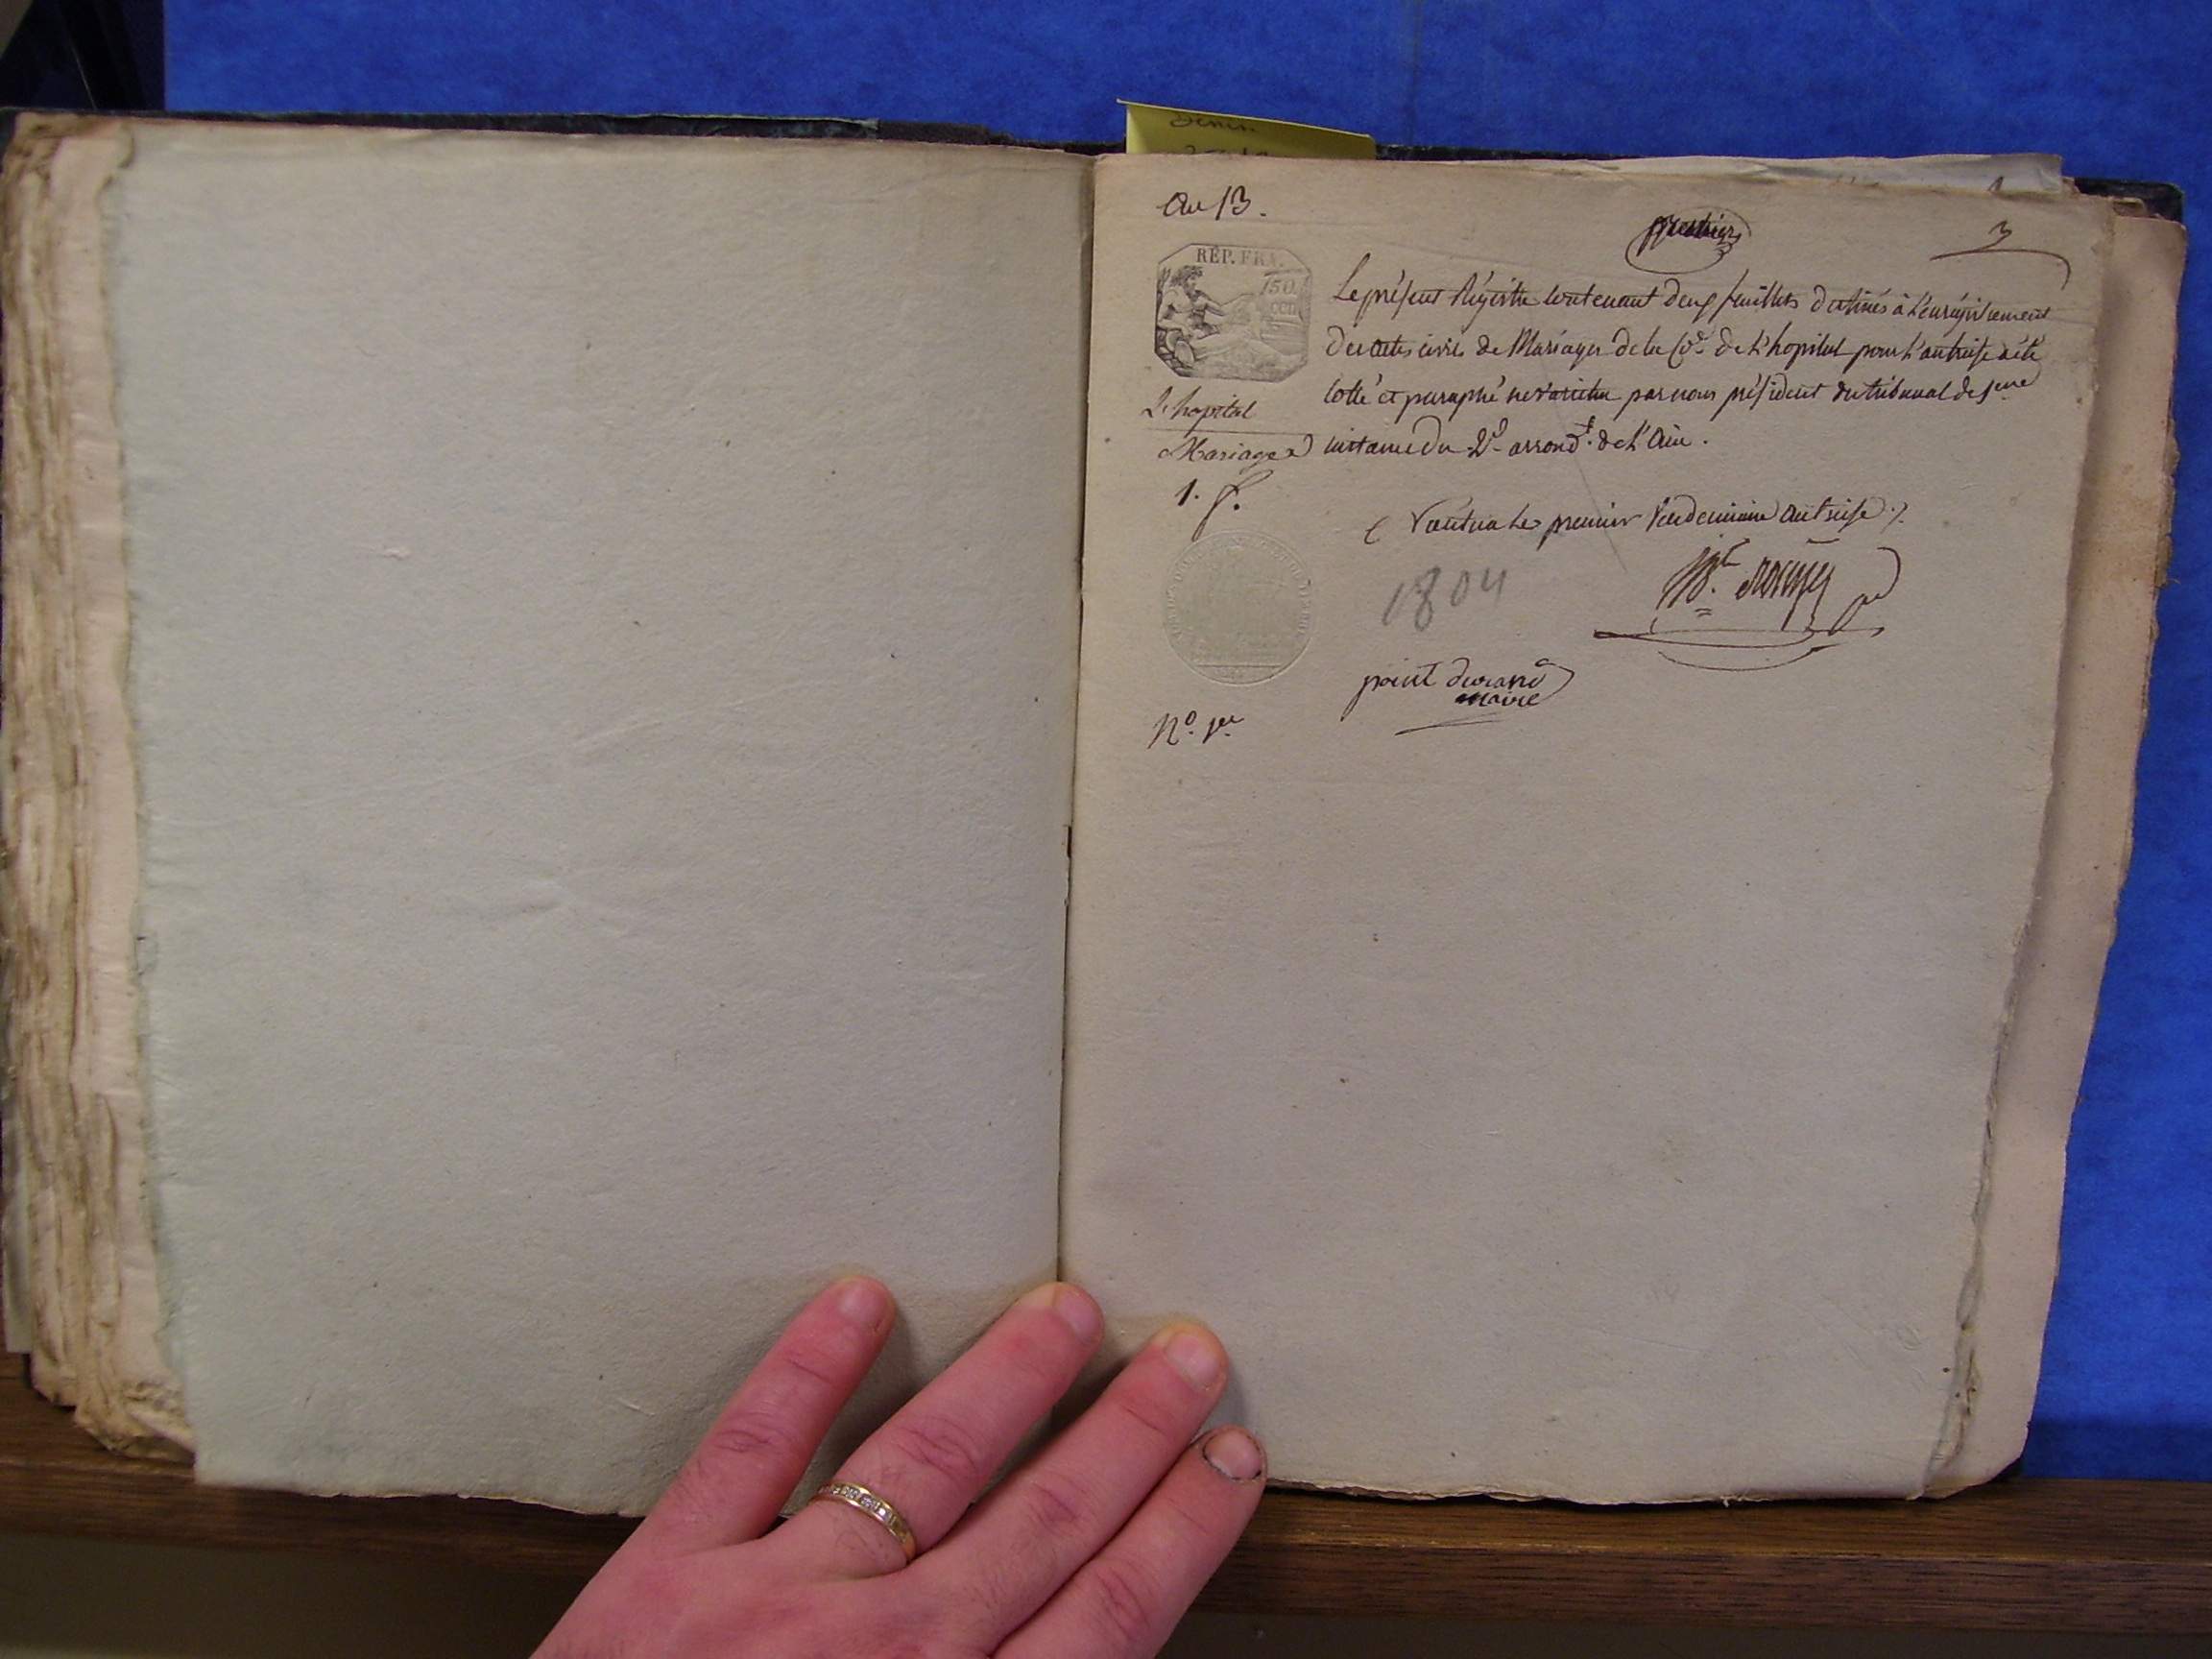 An 13.
premier
3
RÉP. FRA.
50
cen
Le présent Régistre contenant deux feuillets destinés à l'enrégistrement
des actes civils de Mariages de la Cne. de L'hopital pour l'an treise a été
cotté et paraphé ne varietur par nous président du tribunal de 1ere
instance du 2d. arrondt. de L'Ain.
L'hopital
Mariages
1. f.
Nantua Le premier Vendemiaire an treise ./.
1804
point durand
maire
No. 1er